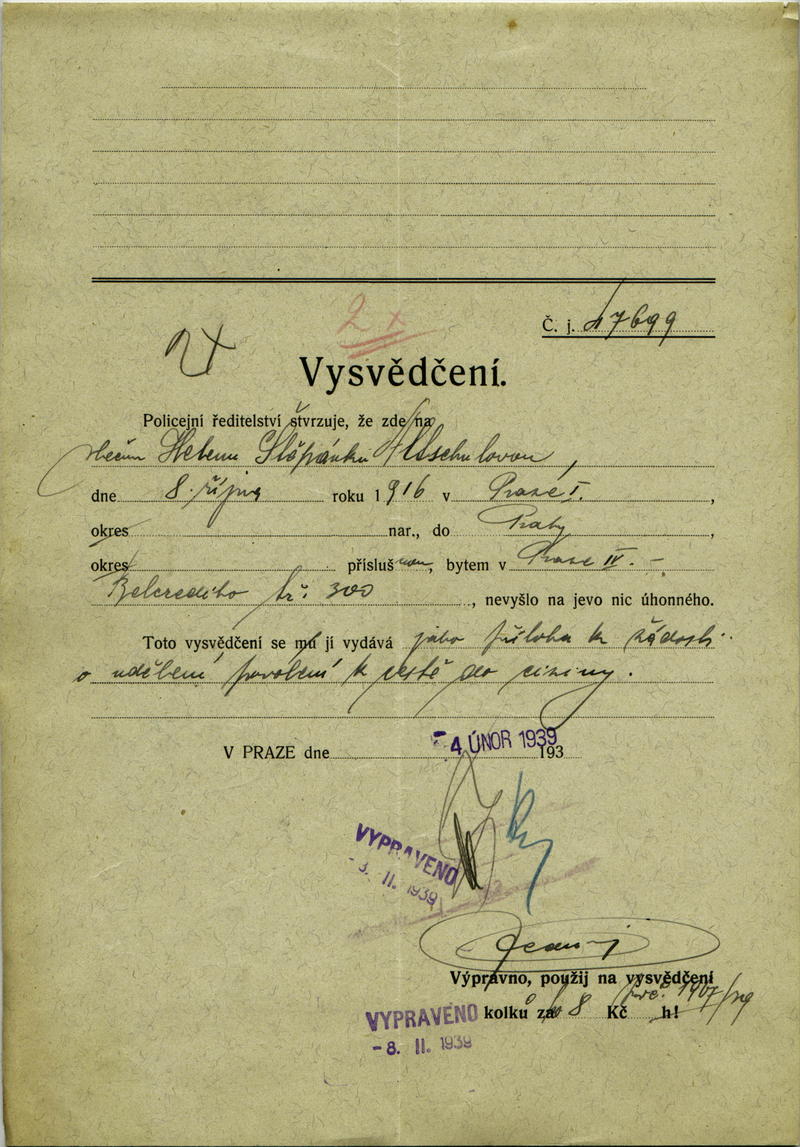 Č. j. 17699
2x
2x
Vysvědčení.
Policejní ředitelství stvrzuje, že zde na
Helenu Štěpánku Altschulovou,
dne 8. října roku 1916 v Praze I.,
okres nar., do Prahy,
okres přísluš nou, bytem v Praze IV. –
Belcrediho tř. 300, nevyšlo na jevo nic úhonného.
Toto vysvědčení se mu jí vydává jako příloha k žádosti
o udělení povolení k cestě do ciziny.
V PRAZE dne -4. ÚNOR 1939 193
VYPRAVENO
-3. II. 1939
Výpravno, použij na vysvědčení
kolků za 8 Kč h!
VYPRAVENO
-8. II. 1939